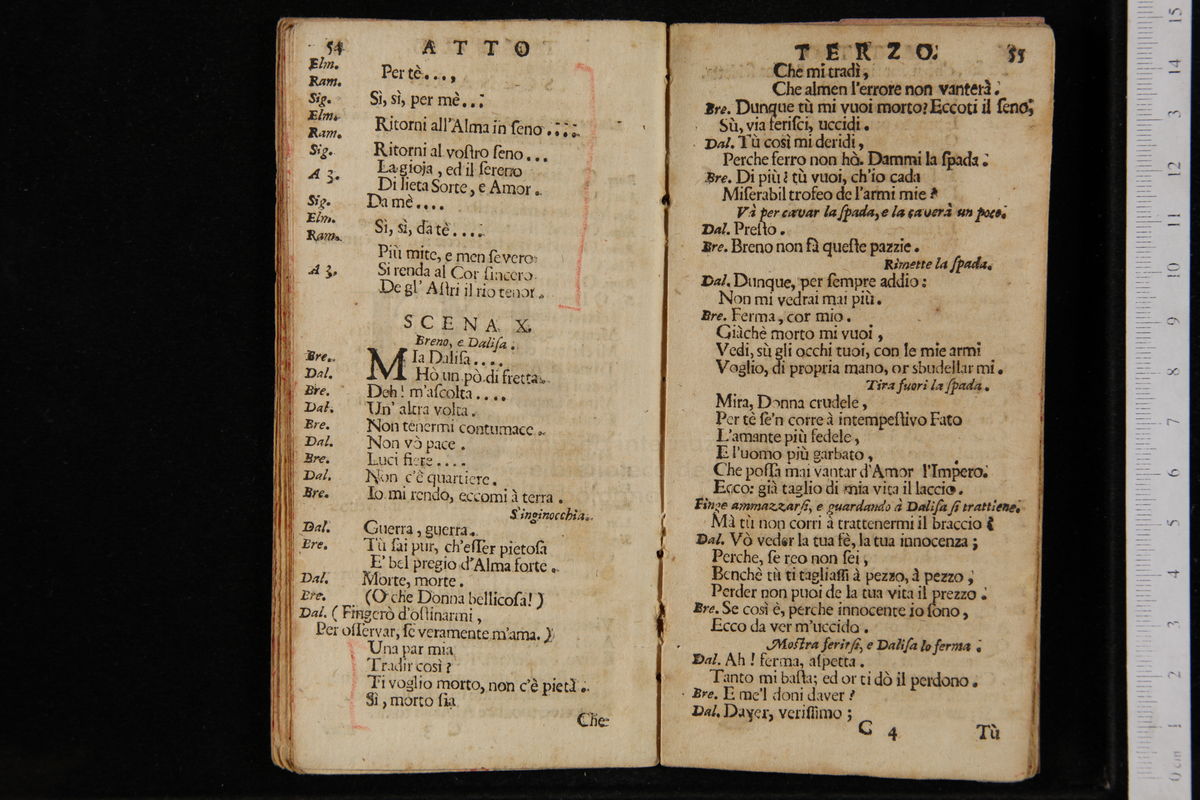 54 ATTO
Elm.
Ram. Per tè...,
Sig. Sì, sì, per mè...
Elm.
Ram. Ritorni all'Alma in ſeno
Sig. Ritorni al voſtro ſeno...
A 3. La gioja, ed il ſereno
Di lieta Sorte, e Amor.
Sig. Da mè....
Elm.
Ram. Sì, sì, da tè....
Più mite, e men ſevero
A 3. Si renda al Cor ſincero
De gl' Aſtri il rio tenor.
SCENA X.
Breno, e Daliſa.
Bre. MIa Daliſa....
Dal. Hò un pò di fretta.
Bre. Deh! m'aſcolta....
Dal. Un' altra volta.
Bre. Non tenermi contumace.
Dal. Non vò pace.
Bre. Luci fiere....
Dal. Non c'è quartiere.
Bre. Io mi rendo, eccomi à terra.
S'inginocchia.
Dal. Guerra, guerra.
Bre. Tù ſai pur, ch'eſſer pietoſa
E' bel pregio d'Alma forte.
Dal. Morte, morte.
Bre. (O che Donna bellicoſa!)
Dal. (Fingerò d'oſtinarmi,
Per oſſervar, ſe veramente m'ama.)
Una par mia
Tradir così?
Ti voglio morto, non c'è pietà.
Sì, morto ſia
Che
TERZO. 55
Che mi tradì,
Che almen l'errore non vanterà.
Bre. Dunque tù mi vuoi morto? Eccoti il ſeno;
Sù, via feriſci, uccidi.
Dal. Tù così mi deridi,
Perche ferro non hò. Dammi la ſpada.
Bre. Di più? tù vuoi, ch'io cada
Miſerabil trofeo de l'armi mie?
Và per cavar la ſpada, e la caverà un poco.
Dal. Preſto.
Bre. Breno non fà queſte pazzie.
Rimette la ſpada.
Dal. Dunque, per ſempre addio:
Non mi vedrai mai più.
Bre. Ferma, cor mio.
Giàchè morto mi vuoi,
Vedi, sù gli occhi tuoi, con le mie armi
Voglio, di propria mano, or sbudellarmi.
Tira fuori la ſpada.
Mira, Donna crudele,
Per tè ſe'n corre à intempeſtivo Fato
L'amante più fedele,
E l'uomo più garbato,
Che poſſa mai vantar d'Amor l'Impero.
Ecco: già taglio di mia vita il laccio.
Finge ammazzarſi, e guardando à Daliſa ſi trattiene.
Mà tù non corri à trattenermi il braccio?
Dal. Vò veder la tua fè, la tua innocenza;
Perche, ſe reo non ſei,
Benchè tù ti tagliaſſi à pezzo, à pezzo,
Perder non puoi de la tua vita il prezzo.
Bre. Se così è, perche innocente io ſono,
Ecco da ver m'uccido.
Moſtra ferirſi, e Daliſa lo ferma.
Dal. Ah! ferma, aſpetta.
Tanto mi baſta; ed or ti dò il perdono.
Bre. E me'l doni daver?
Dal. Daver, veriſſimo;
C 4 Tù